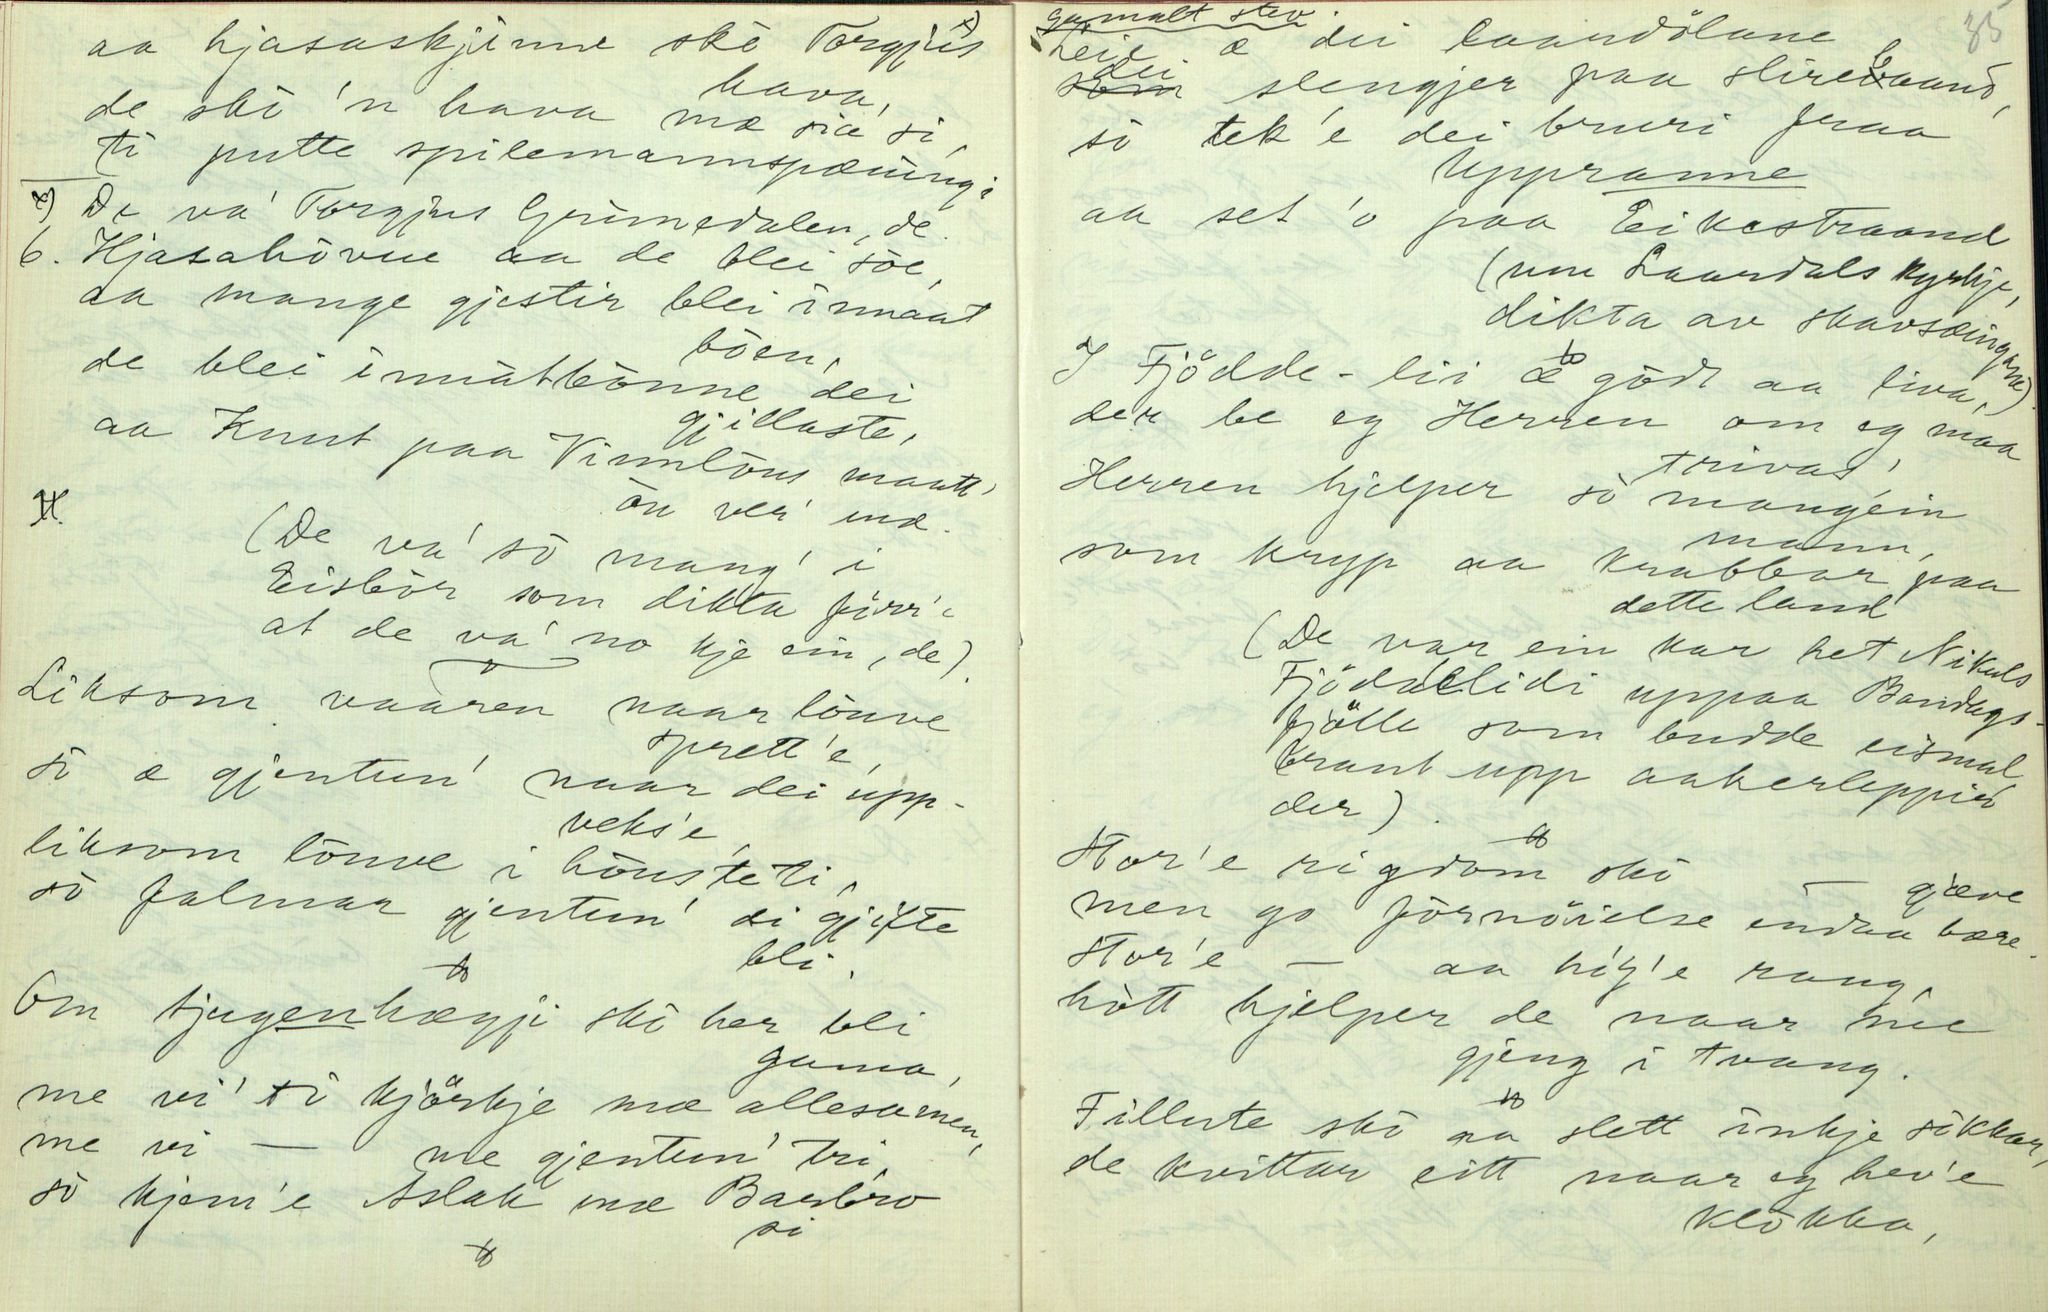 aa hjasaskjinne skò Torgjus x)
de skò 'n hava mæ sia si,
hava,
ti putte spilemannspæningi
x) De va' Torgjus Grimedalen, de.
6. Hjasahòvue aa de blei söe,
aa mange gjestir blei innaat
böen,
de blei innåtbönne dei
gjillaste,
aa Knut paa Vinnlöus maatt'
òn ver' mæ.
(De va' sò mang' i
Eisbòr som dikta förr'e
at de va' no kje ein, de).
Liksom vaaren naar löuve
sprett'e,
sò æ gjentun' naar dei upp-
veks'e,
liksom löuve i höusteti,
sò falmar gjentun' di gjifte
bli.
Om tjugenhægji skò her bli
gama,
me vi' ti kjörkje mæ allesamen,
me vi — me gjentun' tri,
sò kjem'e Aslak mæ Barbro
si
gamalt stev
Leie æ dei laardölane
dei
som slengjer paa slirebaand,
sò tek'e dei bruri fraa
Uppranne
aa set 'o paa Eikestraand
(um Laardals kyrkje,
dikta av skavsæingane).
I Fjödde-lii æ gòdt aa liva,
der be eg Herren om eg maa
trivas,
Herren hjelper sò mangein
mann,
som kryp aa krabbar paa
dette land
(De var ein kar het Nikuls
Fjöddelidi uppaa Bandags-
fjölle som budde eismal
brant upp aakerleppir
der).
Stor'e rigdom skò — gjæve
men go fòrnöielse endaa bære.
Stor'e — aa hög'e rang,
hòtt hjelper de naar mee
gjeng i tvang.
Fillute skò aa slett inkje sikkar,
de kvittar eitt naar eg hev'e
klòkka,
35